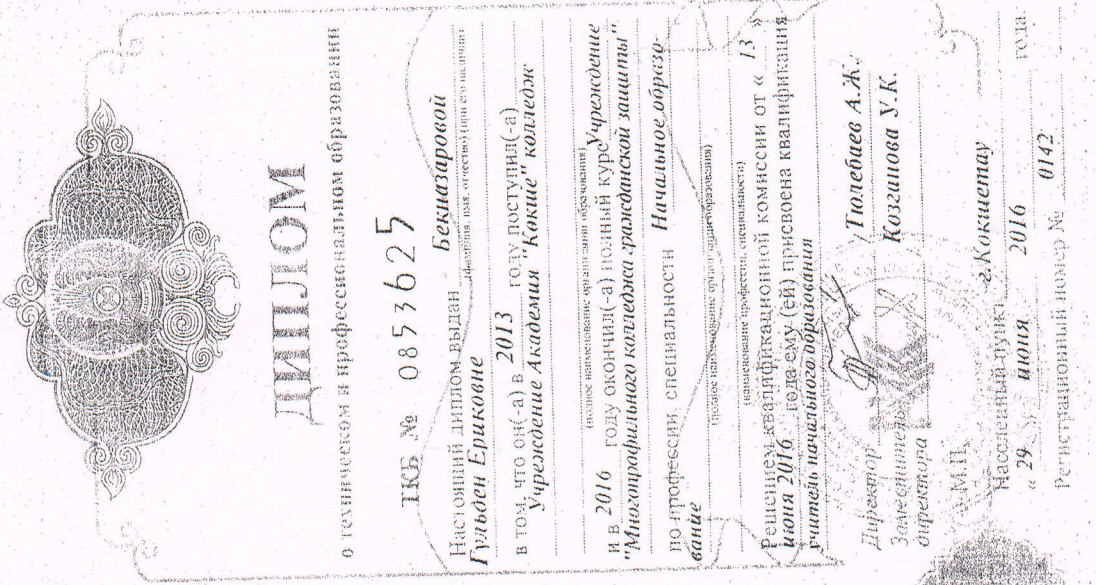 ДИПЛОМ
о техническом и профессиональном образовании
ТКБ № 0853625
Настоящий диплом выдан Бекназаровой
(фамилия, имя, отчество) (при его наличии)
Гульден Ериковне
в том, что он(-а) в 2013 году поступил(-а)
Учреждение Академия "Кокше" колледж
(полное наименование организации образования)
и в 2016 году окончил(-а) полный курс Учреждение
"Многопрофильного колледжа гражданской защиты"
(полное наименование организации образования)
по профессии специальности Начальное образо-
вание
(наименование профессии, специальности)
Решением квалификационной комиссии от « 13 »
июня 2016 года ему (ей) присвоена квалификация
учитель начального образования
Директор / Тюлебиев А.Ж.
Заместитель
директора Козгинова У.К.
М.П.
Населенный пункт г.Кокшетау
« 29 июня 2016 года.
Регистрационный номер № 0142